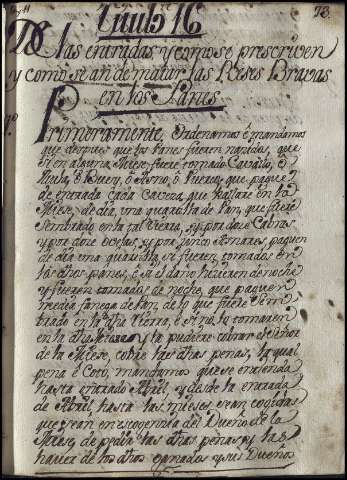 Titulo 16
73.
De las entradas, y como se prescriven
y como se an de matar las Reses Bravas
en los Panes
Primeramente, Ordenamos è mandamos
que despues que los Panes fueren nacidos, que
si en alguna Miese fuere tomado Cavallo, ò
Mula, ò Buey, ò Asno, ò Puerco, que pague
de entrada cada Caveza, que hallare en la
Miese, de dia, una quartilla de Pan, que fuere
sembrado en la tal tierra, y por doce Cabras
y por doce Ovejas, y por cinco Ansares, paguen
de dia una quartilla si fueren tomados en
los dhos panes, è si el daño hicieren de noche
y fueren tomados de noche, que paguen
media fanega de Pan, de lo que fuere Sem
brado en la dha tierra, è si no lo tomaren
en la dha y la pudiere cobrar el Señor
de la Miese, cobre las dhas penas, la qual
pena è Coto, mandamos que se entienda
hasta entrado Abril, y desde la entrada
de Abril, hasta las mieses sean cogidas
que sean en escogencia del Dueño de la
Miese, de pedir las dhas penas, y las
haver de los dhos ganados y sus Dueños